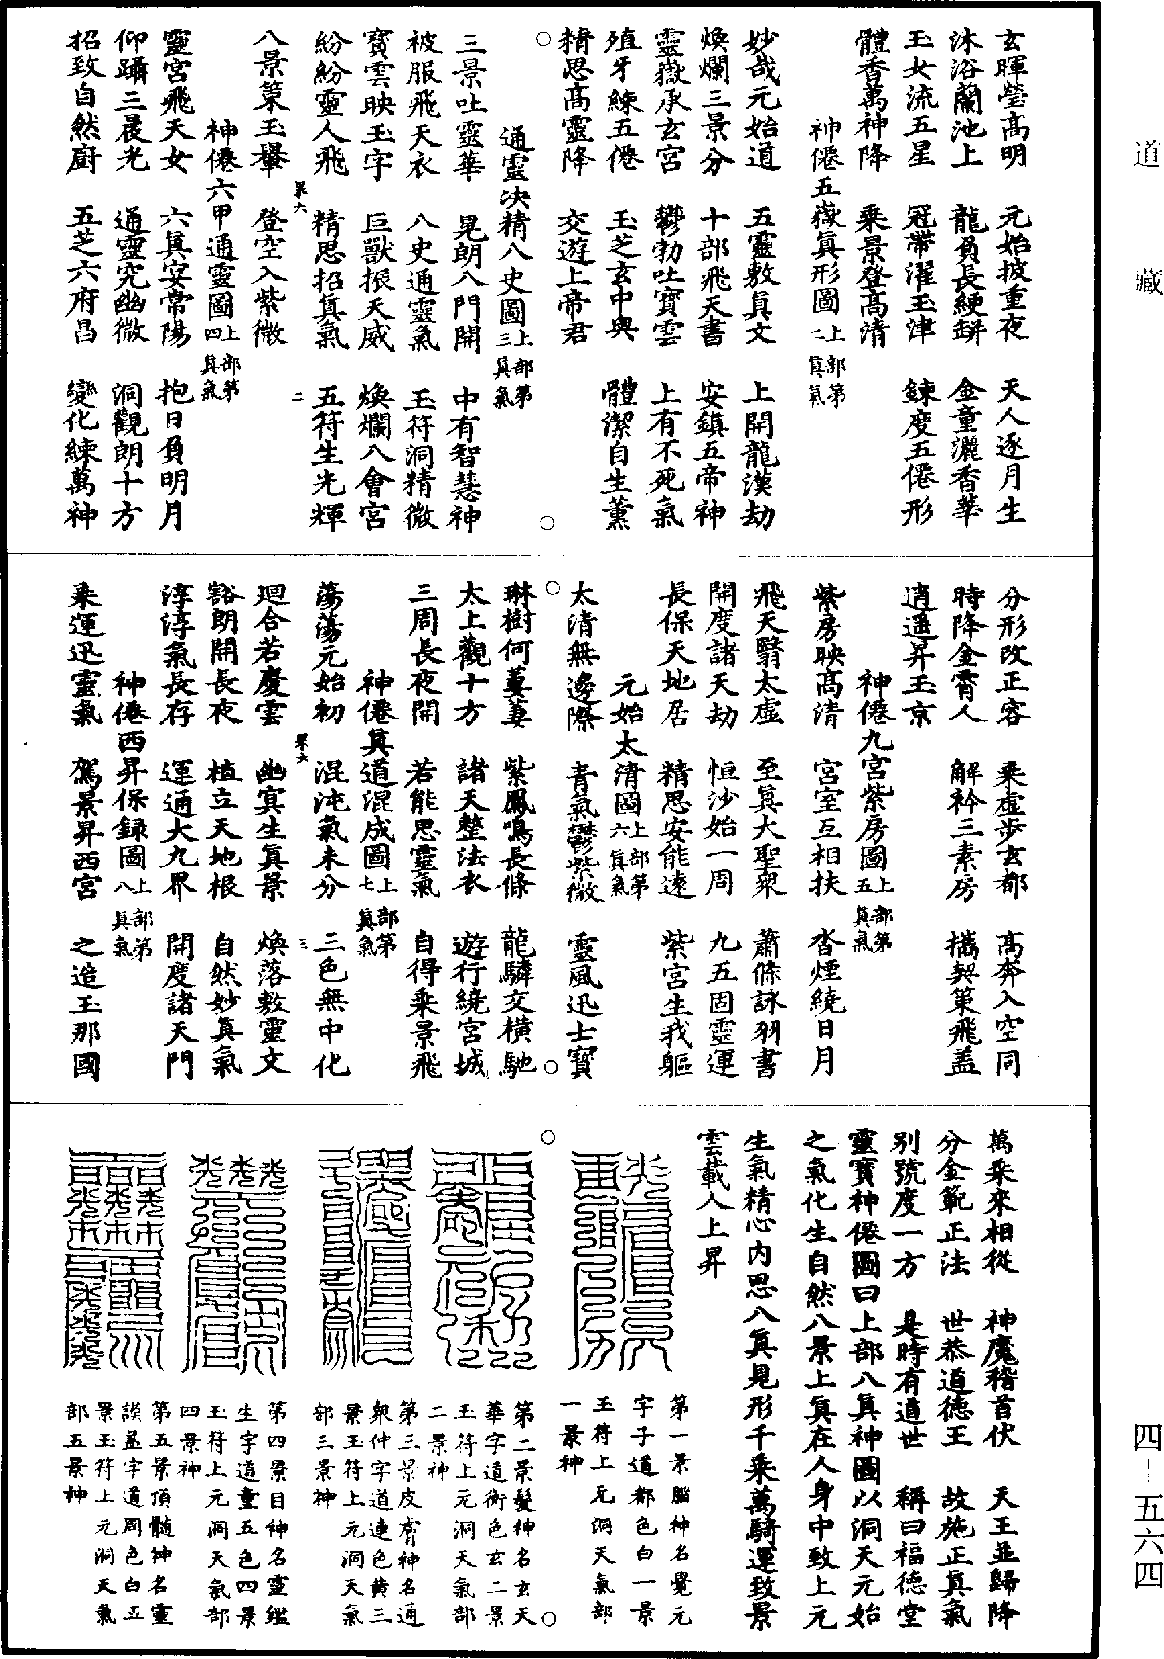 道藏
四-五六四
玄暉瑩高明 元始披重夜 天人逐月生
沐浴蘭池上 龍負長綆缾 金童灑香華
玉女流五星 冠帶濯玉津 鍊度五僊形
體香萬神降 乘景登高清
神僊五嶽真形圖上部第二真氣
妙哉元始道 五靈敷真文 上開龍漢劫
煥爛三景分 十部飛天書 安鎮五帝神
靈嶽承玄宮 鬱勃吐寶雲 上有不死氣
殖牙練五僊 玉芝玄中興 體潔自生薰
精思高靈降 交遊上帝君
通靈決精八史圖上部第三真氣
三景吐靈華 晃朗八門開 中有智慧神
被服飛天衣 八史通靈氣 玉符洞精微
寶雲映玉字 巨獸振天威 煥爛八會宮
紛紛靈人飛 精思招真氣 五符生光輝
果六 二
八景策玉轝 登空入紫微
神僊六甲通靈圖上部第四真氣
靈宮飛天女 六真安常陽 抱日負明月
仰躡三晨光 通靈究幽微 洞觀朗十方
招致自然廚 五芝六府昌 變化練萬神
分形改正容 乘虛步玄都 高奔入空同
時降金霄人 解衿三素房 攜契策飛蓋
逍遙昇玉京
神僊九宮紫房圖上部第五真氣
紫房映高清 宮室互相扶 沓煙繞日月
飛天翳太虛 至真大聖眾 蕭條詠羽書
開度諸天劫 恒沙始一周 九五固靈運
長保天地居 精思安能遠 紫宮生我軀
元始太清圖上部第六真氣
太清無邊際 青氣鬱紫微 靈風迅士寶
琳樹何萋萋 紫鳳鳴長條 龍驎交橫馳
太上觀十方 諸天整法衣 遊行繞宮城
三周長夜開 若能思靈氣 自得乘景飛
神僊真道混成圖上部第七真氣
蕩蕩元始初 混沌氣未分 三色無中化
果六 三
迴合若慶雲 幽冥生真景 煥落敷靈文
豁朗開長夜 植立天地根 自然妙真氣
淳淳氣長存 運通大九界 開度諸天門
神僊西昇保錄圖上部第八真氣
乘運迅靈氣 駕景昇西宮 之造玉那國
萬乘來相從 神魔稽首伏 天王並歸降
分金範正法 世恭道德王 故施正真氣
別號度一方 是時有道世 稱曰福德堂
靈寶神僊圖曰上部八真神圖以洞天元始
之氣化生自然八景上真在人身中致上元
生氣精心內思八真見形千乘萬騎運致景
雲載人上昇
第一景腦神名覺元
字子道都色白一景
玉符上元洞天氣部
一景神
第二景髮神名玄天
華字道衡色玄二景
玉符上元洞天氣部
二景神
第三景皮膚神名通
眾仲字道連色黃三
景玉符上元洞天氣
部三景神
第四景目神名靈鑑
生字道童五色四景
玉符上元洞天氣部
四景神
第五景頂髓神名靈
謨蓋字道周色白五
景玉符上元洞天氣
部五景神